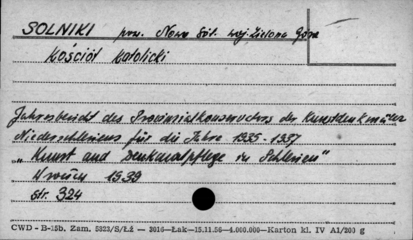 SOLNIKI pow. Nowa Sól. woj. Zielona Góra
Kościół katolicki
Jahresbericht des Provinzialkonservators der Kunstdenkmäler
Niederschlesiens für die Jahre 1935-1937
„Kunst und Denkmalpflege in Schlesien"
Wrocław 1939
str. 324
CWD - B-15b. Zam. 5323/S/Łż — 3016—Łak—15.11.56—4.000.000—Karton kl. IV A1/200 g